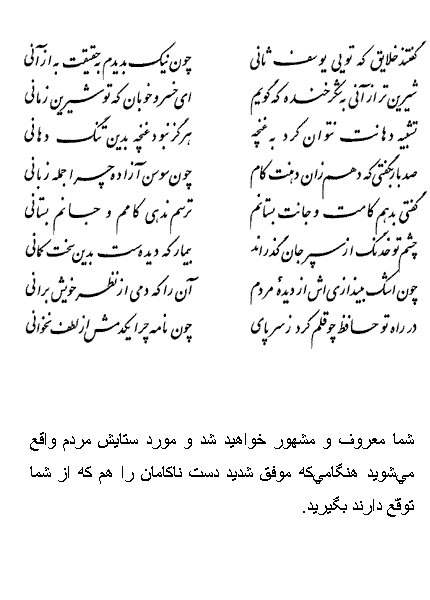 گفتند خلایق که تویی یوسف ثانی چون نیک بدیدم به حقیقت به از آنی
شیرین تر از آنی به شکر خنده که گویم ای خسرو خوبان که تو شیرین زمانی
تشبیه دهانت نتوان کرد به غنچه هرگز نبود غنچه بدین تنگ دهانی
صد بار بگفتی که دهم زان دهنت کام چون سوسن آزاده چرا جمله زبانی
گفتی بدهم کامت و جانت بستانم ترسم ندهی کامم و جانم بستانی
چشم تو خدنگ از سپر جان گذراند بیمار که دیده‌ست بدین سخت کمانی
چون اشک بیندازی‌اش از دیدهٔ مردم آن را که دمی از نظر خویش برانی
در راه تو حافظ چو قلم کرد ز سر پای چون نامه چرا یکدمش از لطف نخوانی
شما معروف و مشهور خواهید شد و مورد ستایش مردم واقع
می‌شوید هنگامی‌که موفق شدید دست ناکامان را هم که از شما
توقع دارند بگیرید.